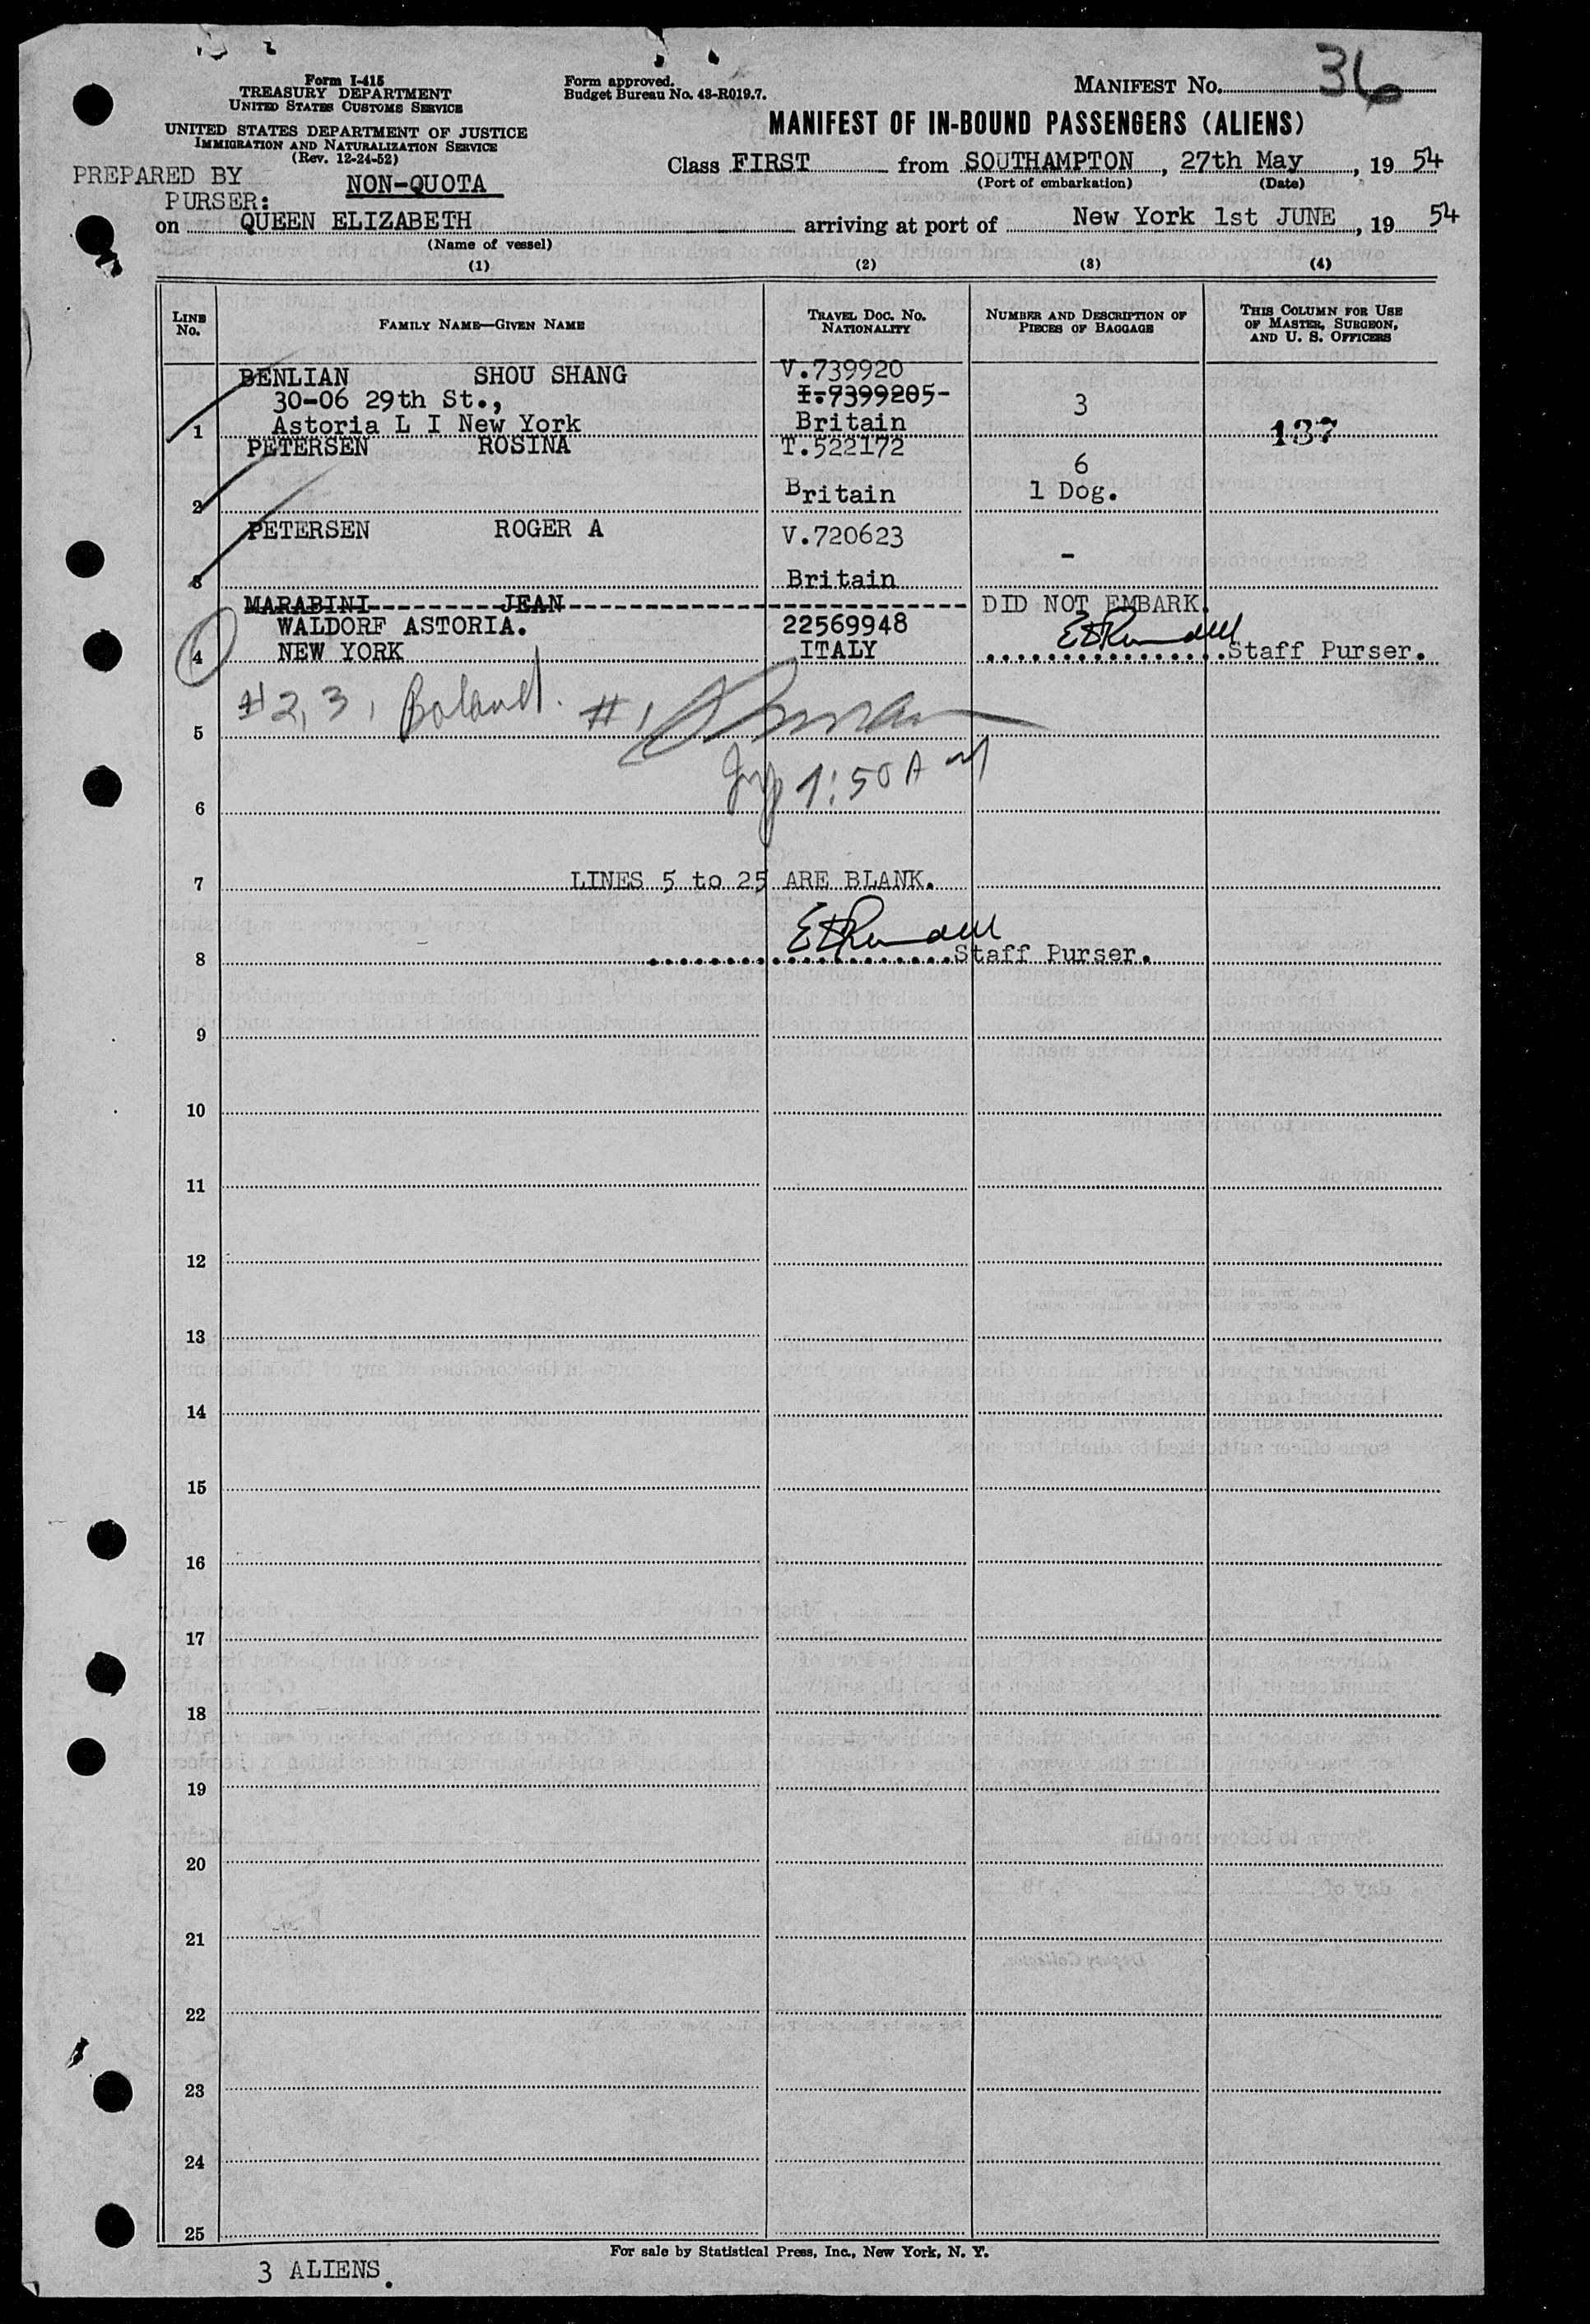 Form I-415
TREASURY DEPARTMENT
UNITED STATES CUSTOMS SERVICE
UNITED STATES DEPARTMENT OF JUSTICE
IMMIGRATION AND NATURALIZATION SERVICE
(Rev. 12-24-52)
Form approved.
Budget Bureau No. 43-R019.7.
MANIFEST NO. 36
MANIFEST OF IN-BOUND PASSENGERS (ALIENS)
Class FIRST from SOUTHAMPTON, 27th May, 19 54
(Port of embarkation) (Date)
PREPARED BY
PURSER:
NON-QUOTA
on QUEEN ELIZABETH arriving at port of New York 1st JUNE, 19 54
(Name of vessel)
(1) (2) (3) (4)
LINE No. FAMILY NAME—GIVEN NAME TRAVEL DOC. NO. NATIONALITY NUMBER AND DESCRIPTION OF PIECES OF BAGGAGE THIS COLUMN FOR USE OF MASTER, SURGEON, AND U. S. OFFICERS
BENLIAN SHOU SHANG V.739920
30-06 29th St., I.7399205- 3
1 Astoria L I New York Britain 137
PETERSEN ROSINA T.522172
6
2 Britain 1 Dog.
PETERSEN ROGER A V.720623 -
3 Britain
MARABINI JEAN DID NOT EMBARK.
WALDORF ASTORIA. 22569948
4 NEW YORK ITALY Staff Purser.
#2, 3, Boland. #1
5
1:50 AM
6
7 LINES 5 to 25 ARE BLANK.
8 Staff Purser.
9
10
11
12
13
14
15
16
17
18
19
20
21
22
23
24
25
For sale by Statistical Press, Inc., New York, N. Y.
3 ALIENS.